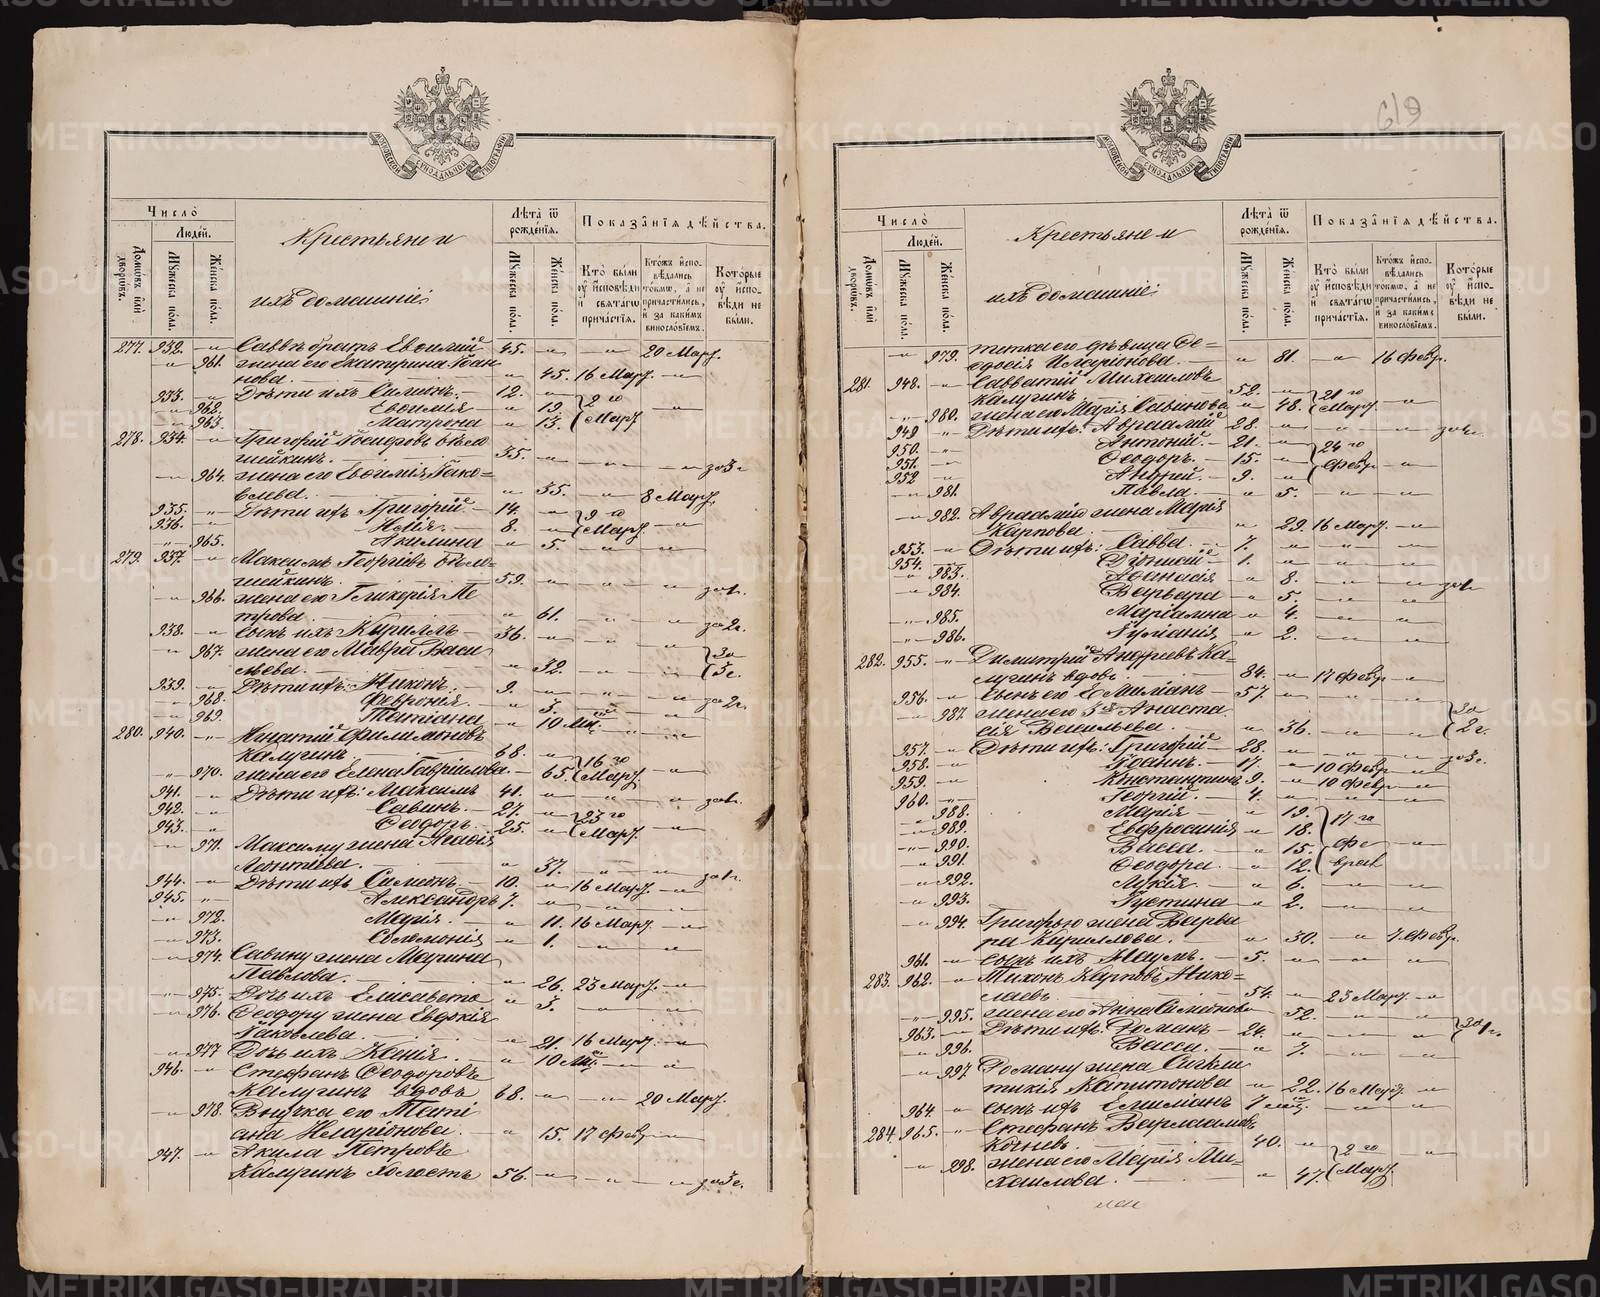 Число̀
Людей.
Домѡвъ или дворѡвъ.
Мꙋжеска пола.
Женска пола.
Крестьяне и
ихъ домашніе:
Лѣта ѿ рожденїѧ.
Мꙋжеска пола.
Женска пола.
Показанїѧ дѣйства.
Кто были оу исповѣди и свѧтагѡ причастїѧ.
Ктожъ исповѣдались токмѡ, а не причастились, и за какимъ винословїемъ.
Которые оу исповѣди не были.
277. 932. — Саввѣ братъ Евѳимій 45. — — 20 Март.
— 961. жена его Екатерина Іоан
нова. — 45. 16 Март. —
933. — Дѣти ихъ Симеонъ. 12. —
— 962. Евѳимія — 19. 2го
— 963. Матрона — 13. Март. —
278. 934. — Григорій Іосифовъ
35. — — — за 3 г.
— 964. жена его Евѳимія Яко-
влева. — 35. — 8 Март.
935. — Дѣти ихъ Григорій — 14. — 9го
936. — 8. — Март. —
— 965. Акилина — 5. — —
279. 937. — Максимъ Георгіевъ
59. — — — за 1 г.
— 966. жена его Гликерія Пе
трова. — 61. — — за 2 г.
938. — сынъ ихъ Кириллъ — 36. — —
— 967. жена его Мавра Васи
льева. — 32. — — за 3 г.
939. — Дѣти ихъ: Никонъ. 9. — —
— 968. Февронія. — 3. — — за 2 г.
— 969. Татіана — 10 мц. —
280. 940. — Игнатій Филимоновъ
Калугинъ 68. — 16го
— 970. жена его Елена Гавріилова. — 65. Март. —
941. — Дѣти ихъ: Максимъ 41. — — за 1 г.
942. — Савинъ. — 27. — 23го
943. — Ѳеодоръ. — 25. — Март. —
— 971. Максиму жена Агаѳія
Леонтіева. — 37. — — за 1 г.
944. — Дѣти ихъ Симеонъ. — 10. — 16 Март. —
945. — Александръ 7. — —
— 972. Марія. — 11. 16 Март. —
— 973. Соломонія — 1. — —
— 974. Савину жена Марина
Павлова. — 26. 23 Март. —
— 975. Дочь ихъ Елисавета — 3. — —
— 976. Ѳеодору жена Евдокія
Яковлева. — 21. 16 Март. —
— 977 Дочь ихъ Ксенія. — 10 мц. —
946. — Стефанъ Ѳеодоровъ
Калугинъ вдовъ 68. — — 20 Март.
— 978. Внучка его Тати
ана Иларіонова. — 15. 17 февр. —
947. — Акила Петровъ
Калугинъ холостъ 56. — — — за 3 г.
619
Число̀
Людей.
Домѡвъ или дворѡвъ.
Мꙋжеска пола.
Женска пола.
Крестьяне и
ихъ домашніе:
Лѣта ѿ рожденїѧ.
Мꙋжеска пола.
Женска пола.
Показанїѧ дѣйства.
Кто были оу исповѣди и свѧтагѡ причастїѧ.
Ктожъ исповѣдались токмѡ, а не причастились, и за какимъ винословїемъ.
Которые оу исповѣди не были.
— 979. тетка его дѣвица Ѳе-
одосія Иларіонова. — 81. — 16 февр.
281. 948. — Савватій Михаиловъ
Калугинъ 52. — 21го
— 980. жена его Марія Савинова — 48. Март. —
949 — Дѣти ихъ: Авраамій 28. — — за 1 г.
950. — Антоній. — 21. — 24го
951. — Ѳеодоръ. — 15. — февр. —
952 — Андрей. — 9. —
— 981. Павла. — 5. — —
— 982. Авраамію жена Марія
Карпова. — 29. 16 Март. —
953. — Дѣти ихъ: Савва. — 7. — —
954. — Діонисій — 1. — —
— 983. Аѳанасія — 8. — — за 1 г.
— 984. Варвара — 5. — —
— 985. Маріамна — 4. — —
— 986. Іуліанія — 2. — —
282. 955. — Димитрій Андреевъ Ка-
лугинъ вдовъ. — 84. — 17 февр. —
956. — сынъ его Емиліанъ — 57. — —
— 987. жена его 3я Анаста
сія Васильева. — 36. — — за 2 г.
957. — Дѣти ихъ: Григорій — 28. — — за 3 г.
958. — Іоаннъ. — 17. — 10 февр. —
959. — Константинъ 9. — 10 февр. —
960. — Георгій. — 4. — —
— 988. Марія — 19. 17го
— 989. Евфросинія — 18. фе
— 990. Васса. — 15. враля —
— 991. Ѳеодора. — 12.
— 992. Лукія. — 6. — —
— 993. Іустина — 2. — —
— 994. Григорью жена Варва
ра Кириллова. — 30. — 7 февр.
961. — сынъ ихъ Наумъ. — 5. — —
283. 962. — Тихонъ Карповъ Нико-
лаевъ 54. — 23 Март. —
— 995. жена его Анна Симеонова — 52. — — за 1 г.
963. — Дѣти ихъ: Романъ — 24. — —
— 996. Васса. — 7. — —
— 997 Роману жена Синкли
тикія Капитонова — 22. 16 Март. —
964. — сынъ ихъ Емиліанъ 7 мц. — —
284. 965. — Стефанъ Варлаамовъ
40. — 2го
— 998. жена его Марія Ми-
хаилова. — 47. Март. —